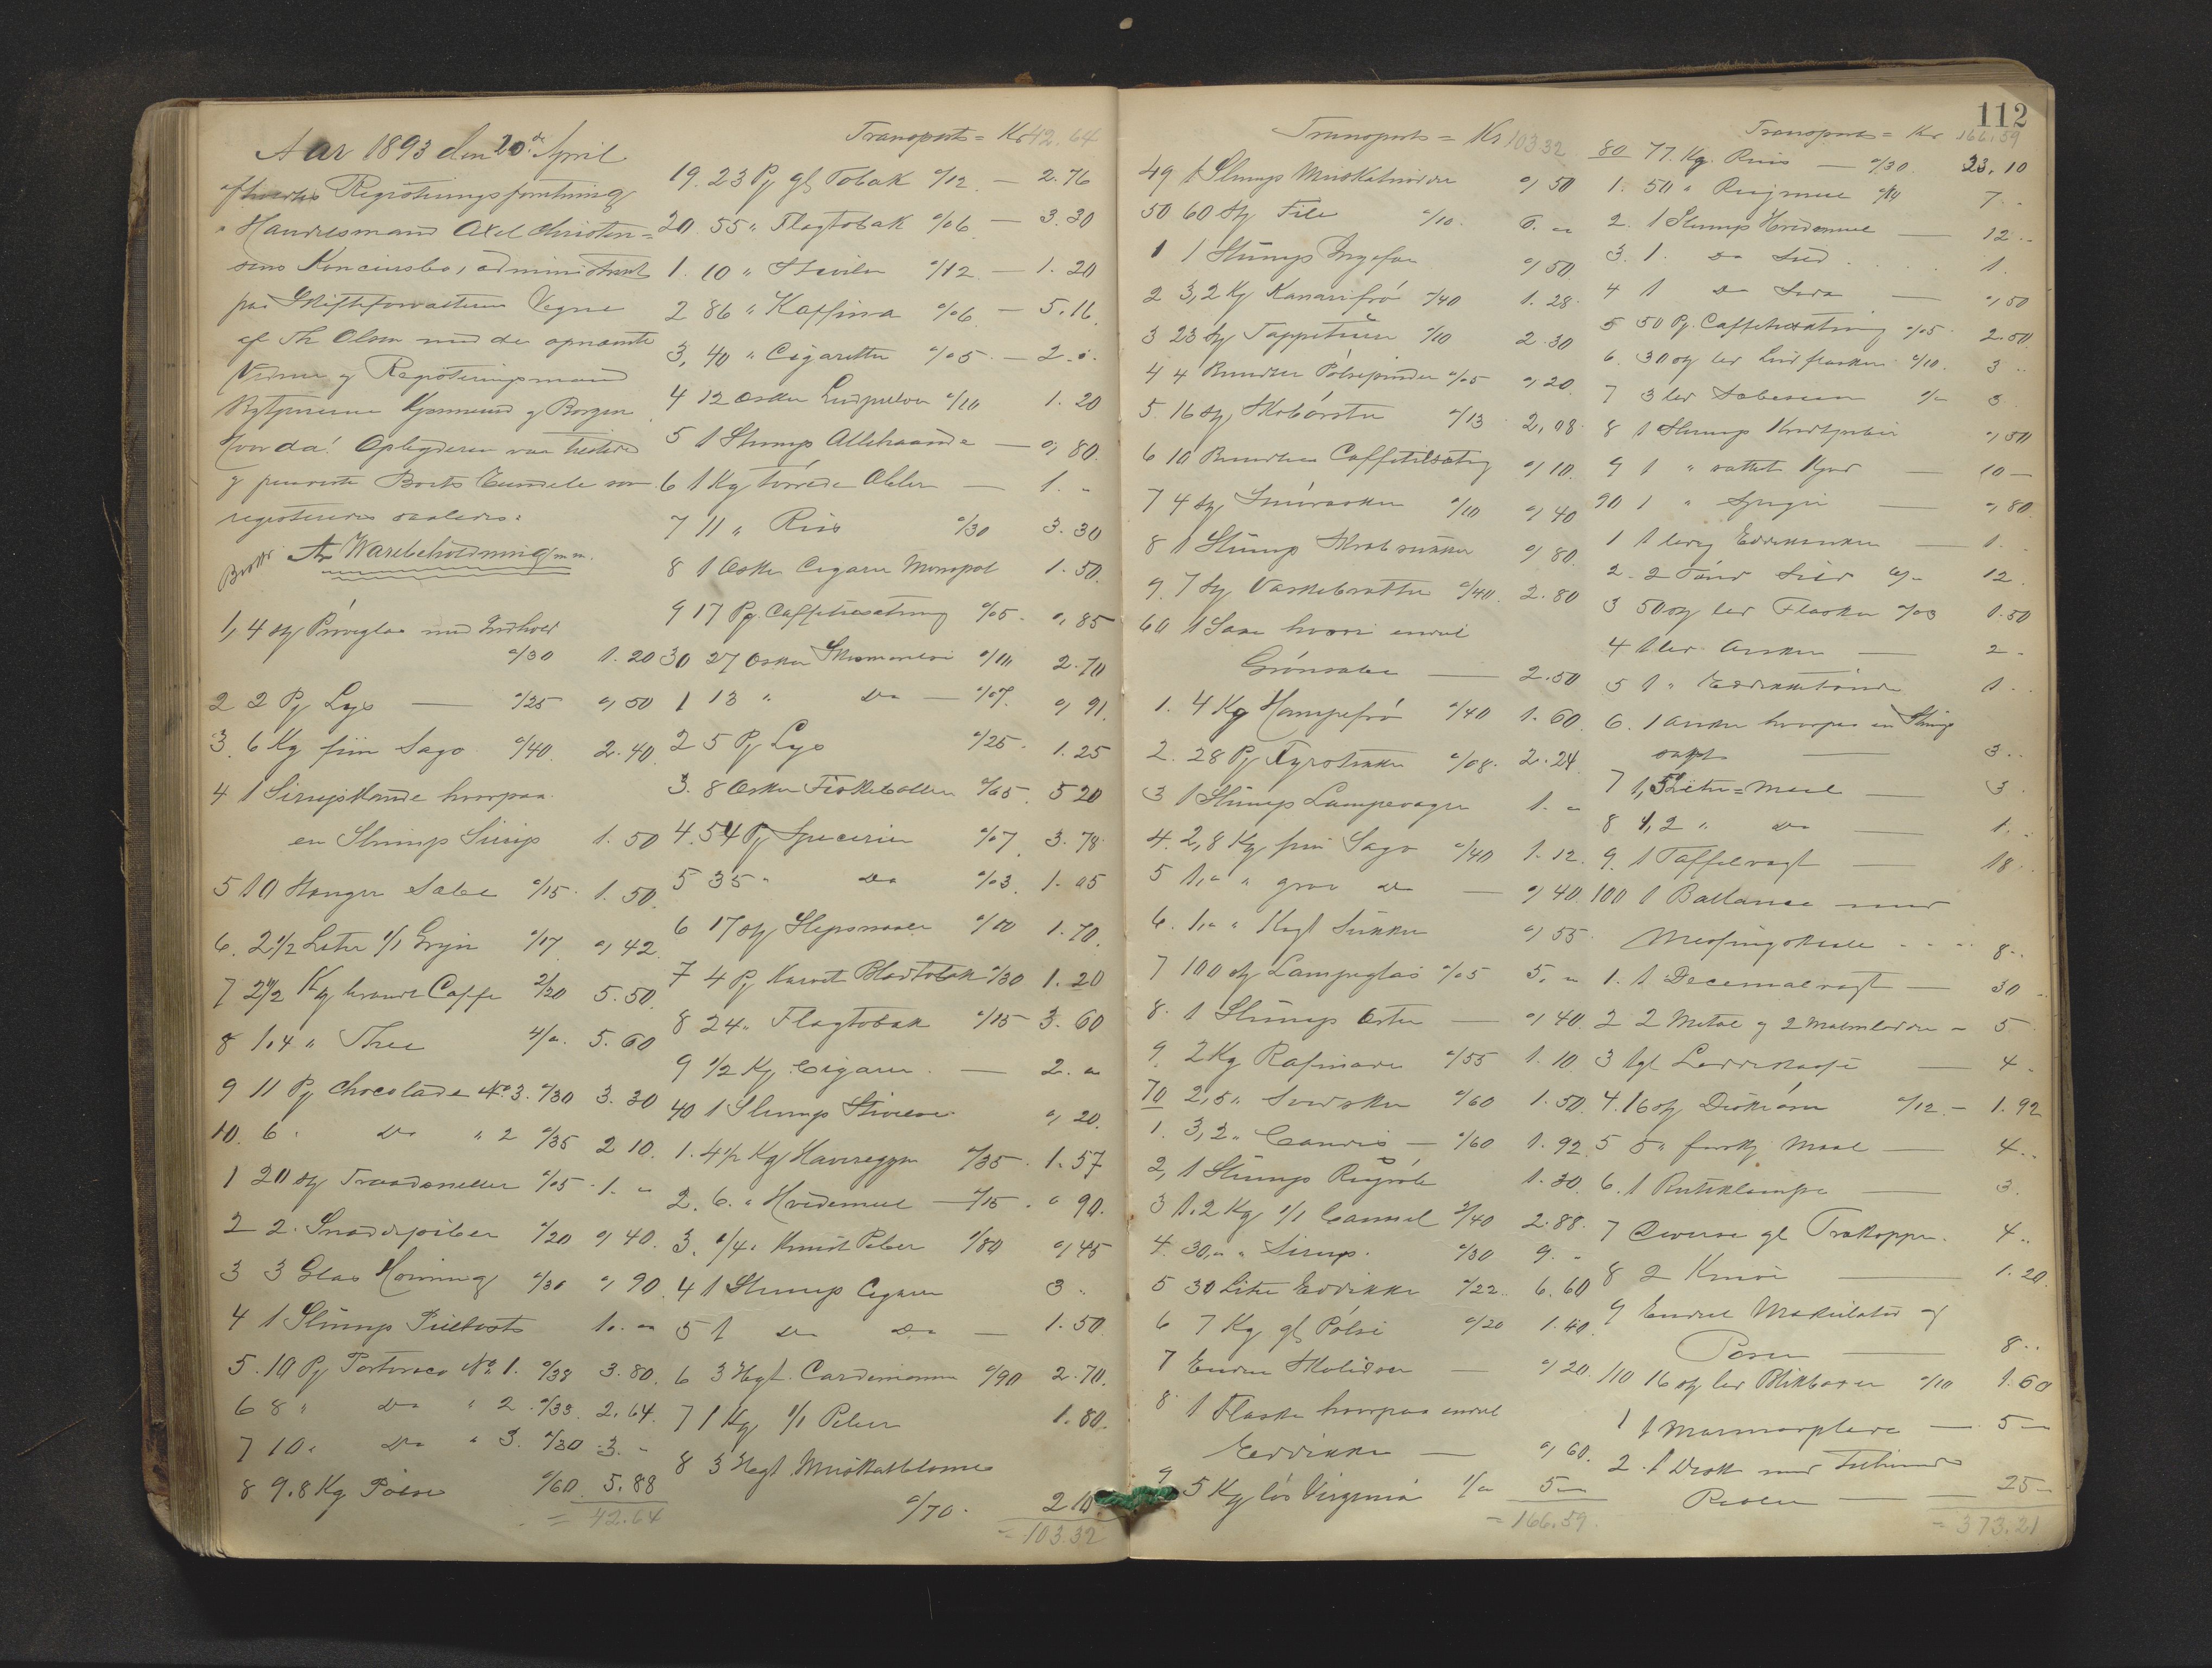 Aar 1893 den 20de April
Registreringsforretning
Handelsmand Axel Christen=
sens Koncursbo, administreret
paa Skifteforvalterens Vegne
af Th Olsen med de opnævnte
Vidner og Registreringsmænd
og Borgen
Hvorda!
og Boets Eiendele som
registreredes saaledes:
A, Varebeholdning m.m.
1, 4 stk Prøveglas med Indhold
a/30 1.20
2 2 Pk Lys — a/25 0,50
3. 6 Kg fiin Sago a/40. 2.40.
4 1 Sirupskande hvorpaa
en Slump Sirup 1.50
5 10 Stanger Sæbe a/15. 1.50.
6. 2 1/2 Liter 1/1 Gryn a/17 0,42.
7 2 1/2 Kg brændt Caffe 2/20 5.50.
8 1.4 " Thee 4/". 5.60
9 11 Pk Chocolade No. 3. a/30 3.30
10. 6 " Do " 2 a/35 2 10.
1 20 stk Traadsneller a/05. 1. "
2 2. Snadderpiber a/20 0,40.
3 3 Glas Honning a/30 0,90.
4 1 Slump 1. "
5. 10 Pk Portorico No. 1. a/38 3.80.
6 8 " Do " 2. a/33. 2.64.
7 10 " Do " 3. a/30 3. "
8 9.8 Kg Pølse a/60. 5.88
= 42.64
Transport = Kr 42.64
19. 23 Pk gl Tobak a/12. — 2.76
20 55 " Flagtobak a/06. — 3.30
1. 10 " a/12 — 1.20
2 86 " Kaffina a/06 — 5.16.
3, 40 " Cigaretter a/05. — 2. ".
4 12 Æsker a/10 1.20
5 1 Slump Allehaande — 0,80.
6 1 Kg tørrede Æbler — 1. -
7 11 " Riis a/30 3.30
8 1 Æske Cigarer Monopol 1.50.
9 17 Pk Caffetilsætning a/05. 0,85
30 27 Æsker a/10 2.70
1 13 " Do — a/07. 0,91.
2 5 Pk Lys a/25. 1.25
3. 8 Æsker Fiskeboller a/65. 5 20
4. 54 Pk Specerier a/07. 3.78
5 35 " Do a/03. 1.05
6 17 stk a/10 1.70.
7 4 Pk Karvet Bladtobak a/30 1.20
8 24 " Flagtobak a/15 3.60
9 1/2 Kg Cigarer. — 2. "
40 1 Slump Stivelse 0,20.
1. 4 1/2 Kg Havregryn a/35. 1.57
2. 6. " Hvedemeel — a/15. " 90.
3. 1/4 " Knust Peber 1/80 0,45
4 1 Slump Cigarer 3 "
5 1 Do Do — 1.50
6 3 Hegt. Cardemomme a/90 2.70.
7 1 Kg 1/1 Peber 1.80.
8 3 Hegt Muskatblomme
a/70. 2 10
= 103.32
112
Transport = Kr 103 32
49 1 Slump Muskatnødder 0,50
50 60 stk File a/10. 6. "
1 1 Slump Ingefær 0,50
2 3,2 Kg Kanarifrø a/40 1.28.
3 23 stk a/10 2.30
4 4 Bundter Pølsepinder a/05 0,20.
5. 16 stk Skobørster a/13 2,08
6 10 Bundter Caffetilsætng 0,10.
7 4 stk Smøræsker a/10 0,40
8 1 Slump 0,80.
9. 7 stk Vaskebrætter a/40. 2.80
60 1 Saae hvori endel
Grønsæbe — 2.50
1. 4 Kg Hampefrø a/40 1.60
2. 28 Pk Fyrstikker a/08. 2.24
3 1 Slump Lampevæger 1. "
4. 2,8 Kg fiin Sago a/40 1.12.
5 1," " grov Do — 0,40.
6. 1," " Hugt Sukker 0,55.
7 100 stk Lampeglas a/05 5. "
8. 1 Slump Erter — 0,40.
9. 2 Kg Rafinade a/55 1.10
70 2,5 " Svedsker a/60 1.50.
1. 3,2 " Candis — a/60 1.92
2, 1 Slump 1.30.
3 1.2 Kg 1/1 Caneel 2/40 2.88.
4. 30," " Sirup. a/30 9. "
5 30 Liter Eddikke a/22. 6.60
6 7 Kg gl Pølse a/20 1.40.
7 Endel — 0,20.
8 1 Flaske hvorpaa endel
Eddikke — 0,60.
9 5 Kg løs Virginia 1/" 5 —
= 166.59.
Transport = Kr 166.59
80 77. Kg. Riis — a/30. 23.10
1. 50 " Rugmeel 7 "
2. 1 Slump Hvedemeel — 12. -
3. 1. Do Sild 1.
4 1 Do Soda — 0,50
5 50 Pk. Caffetilsætning a/05 2.50.
6. 30 stk led flasker a/10. 3 "
7 3 led 1/" 3
8 1 Slump 0,50
9 1 " saltet Kjød — 10 —
90 1 " — 0,80.
1 1 ledig Eddikanker — 1. -
2. 2 Tønd Sild 6/" 12.
3 50 stk led Flasker a/03 1.50
4 1 led Anker — 2 -
5 1 " Eddikketønde 1 "
6. 1 Anker hvorpaa en Slump
— 3 "
7 1, 5 Liter = Maal — 3.
8 1, 2 " Do — 1. "
9. 1 Taffelvægt — 18 "
100 1 Ballance med
Messingskaale 8 "
1. 1 Decemalvægt — 30 "
2 2 Metal og 2 — 5
3 1 gl — 4 -
4. 16 stk a/12. — 1.92
5 5 " Maal — 4 "
6. 1 Butiklampe — 3.
7 Diverse gl Trækopper. 4 "
8 2 Knive — 1.20.
9 Endel Makulatur og
Poser — 8 "
110 16 stk led Blikbøxer a/10 1.60
1 1 Marmorplade — 5 —
2. 1 Disk med
Reoler — 25 —
= 373.21